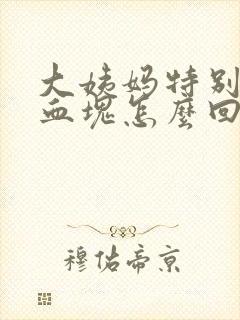 大姨妈特别
血塊怎麼回
穆佑帝京